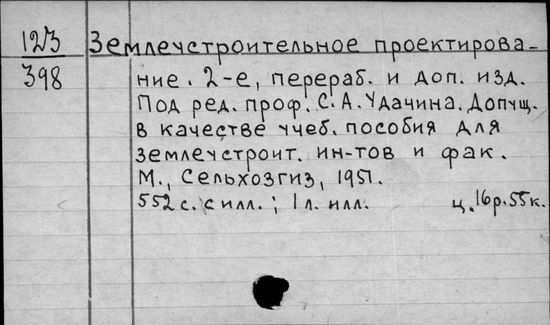 123
398
Землеустроительное проектирова-
ние. 2-е, перераб. и доп. изд.
Под ред. проф. С. А. Удачина. Допущ.
в качестве учеб. пособия для
землеустроит. ин-тов и фак.
М., Сельхозгиз, 1951.
552 с. с илл.; 1 л. илл. ц. 16 р. 55 к.